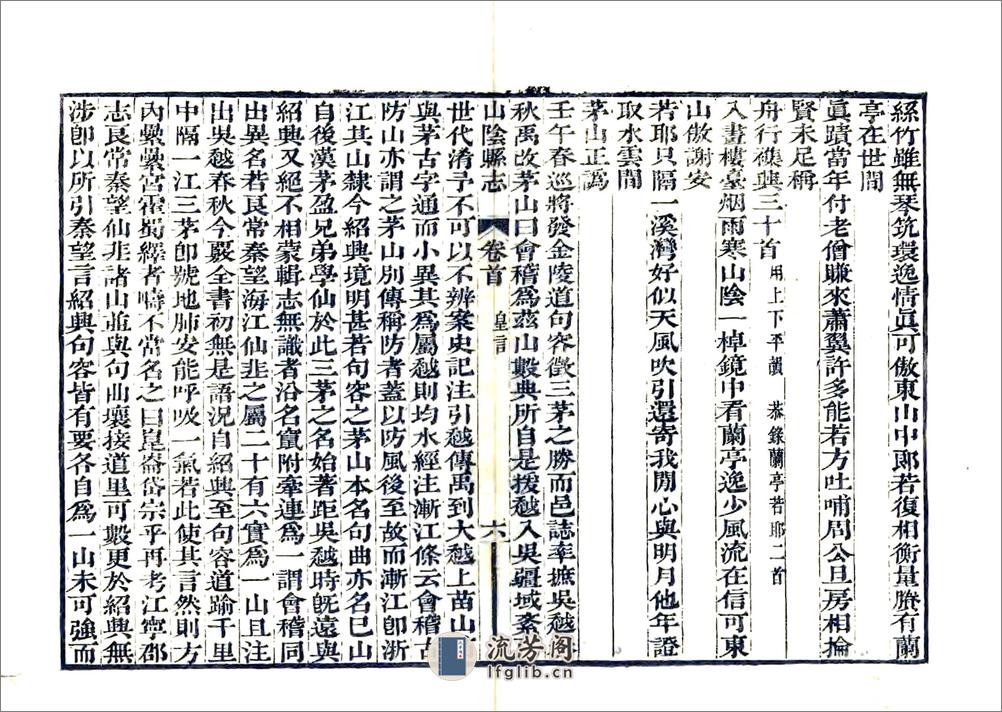 絲竹雖無琴筑環逸情眞可傲東山中郞若復相衡量賸有蘭
亭在世間
眞蹟當年付老僧賺來蕭翼許多能若方吐哺周公旦房相掄
賢未足稱
舟行雜興三十首用上下平韻 恭錄蘭亭若耶二首
入畫樓臺烟雨寒山陰一棹鏡中看蘭亭逸少風流在信可東
山傲謝安
若耶只隔一溪灣好似天風吹引還寄我閒心與明月他年證
取水雲間
茅山正譌
壬午春巡將發金陵道句容徵三茅之勝而邑誌率摭吳越春
秋禹改茅山曰會稽爲茲山數典所自是拨越入吳疆域紊而
山陰縣志 卷首 皇言 六
世代淆予不可以不辨案史記注引越傳禹到大越上苗山苗
與茅古字通而小異其爲屬越則均水經注漸江條云會稽古
防山亦謂之茅山別傳稱防者蓋以防風後至故而漸江卽浙
江其山隸今紹興境明甚若句容之茅山本名句曲亦名巳山
自後漢茅盈兄弟學仙於此三茅之名始著距吳越時旣遠與
紹興又絕不相蒙輯志無識者沿名竄附牽連爲一謂會稽同
出異名若良常秦望海江仙韭之屬二十有六實爲一山且注
出吳越春秋今覈全書初無是語況自紹興至句容道踰千里
中隔一江三茅卽號地肺安能呼吸一氣若此使其言然則方
內纍纍宮霍蜀繹者疇不常名之曰崑崙岱宗乎再考江寧郡
志良常秦望仙韭諸山並與句曲壤接道里可數更於紹興無
涉卽以所引秦望言紹興句容皆有要各自爲一山未可強而